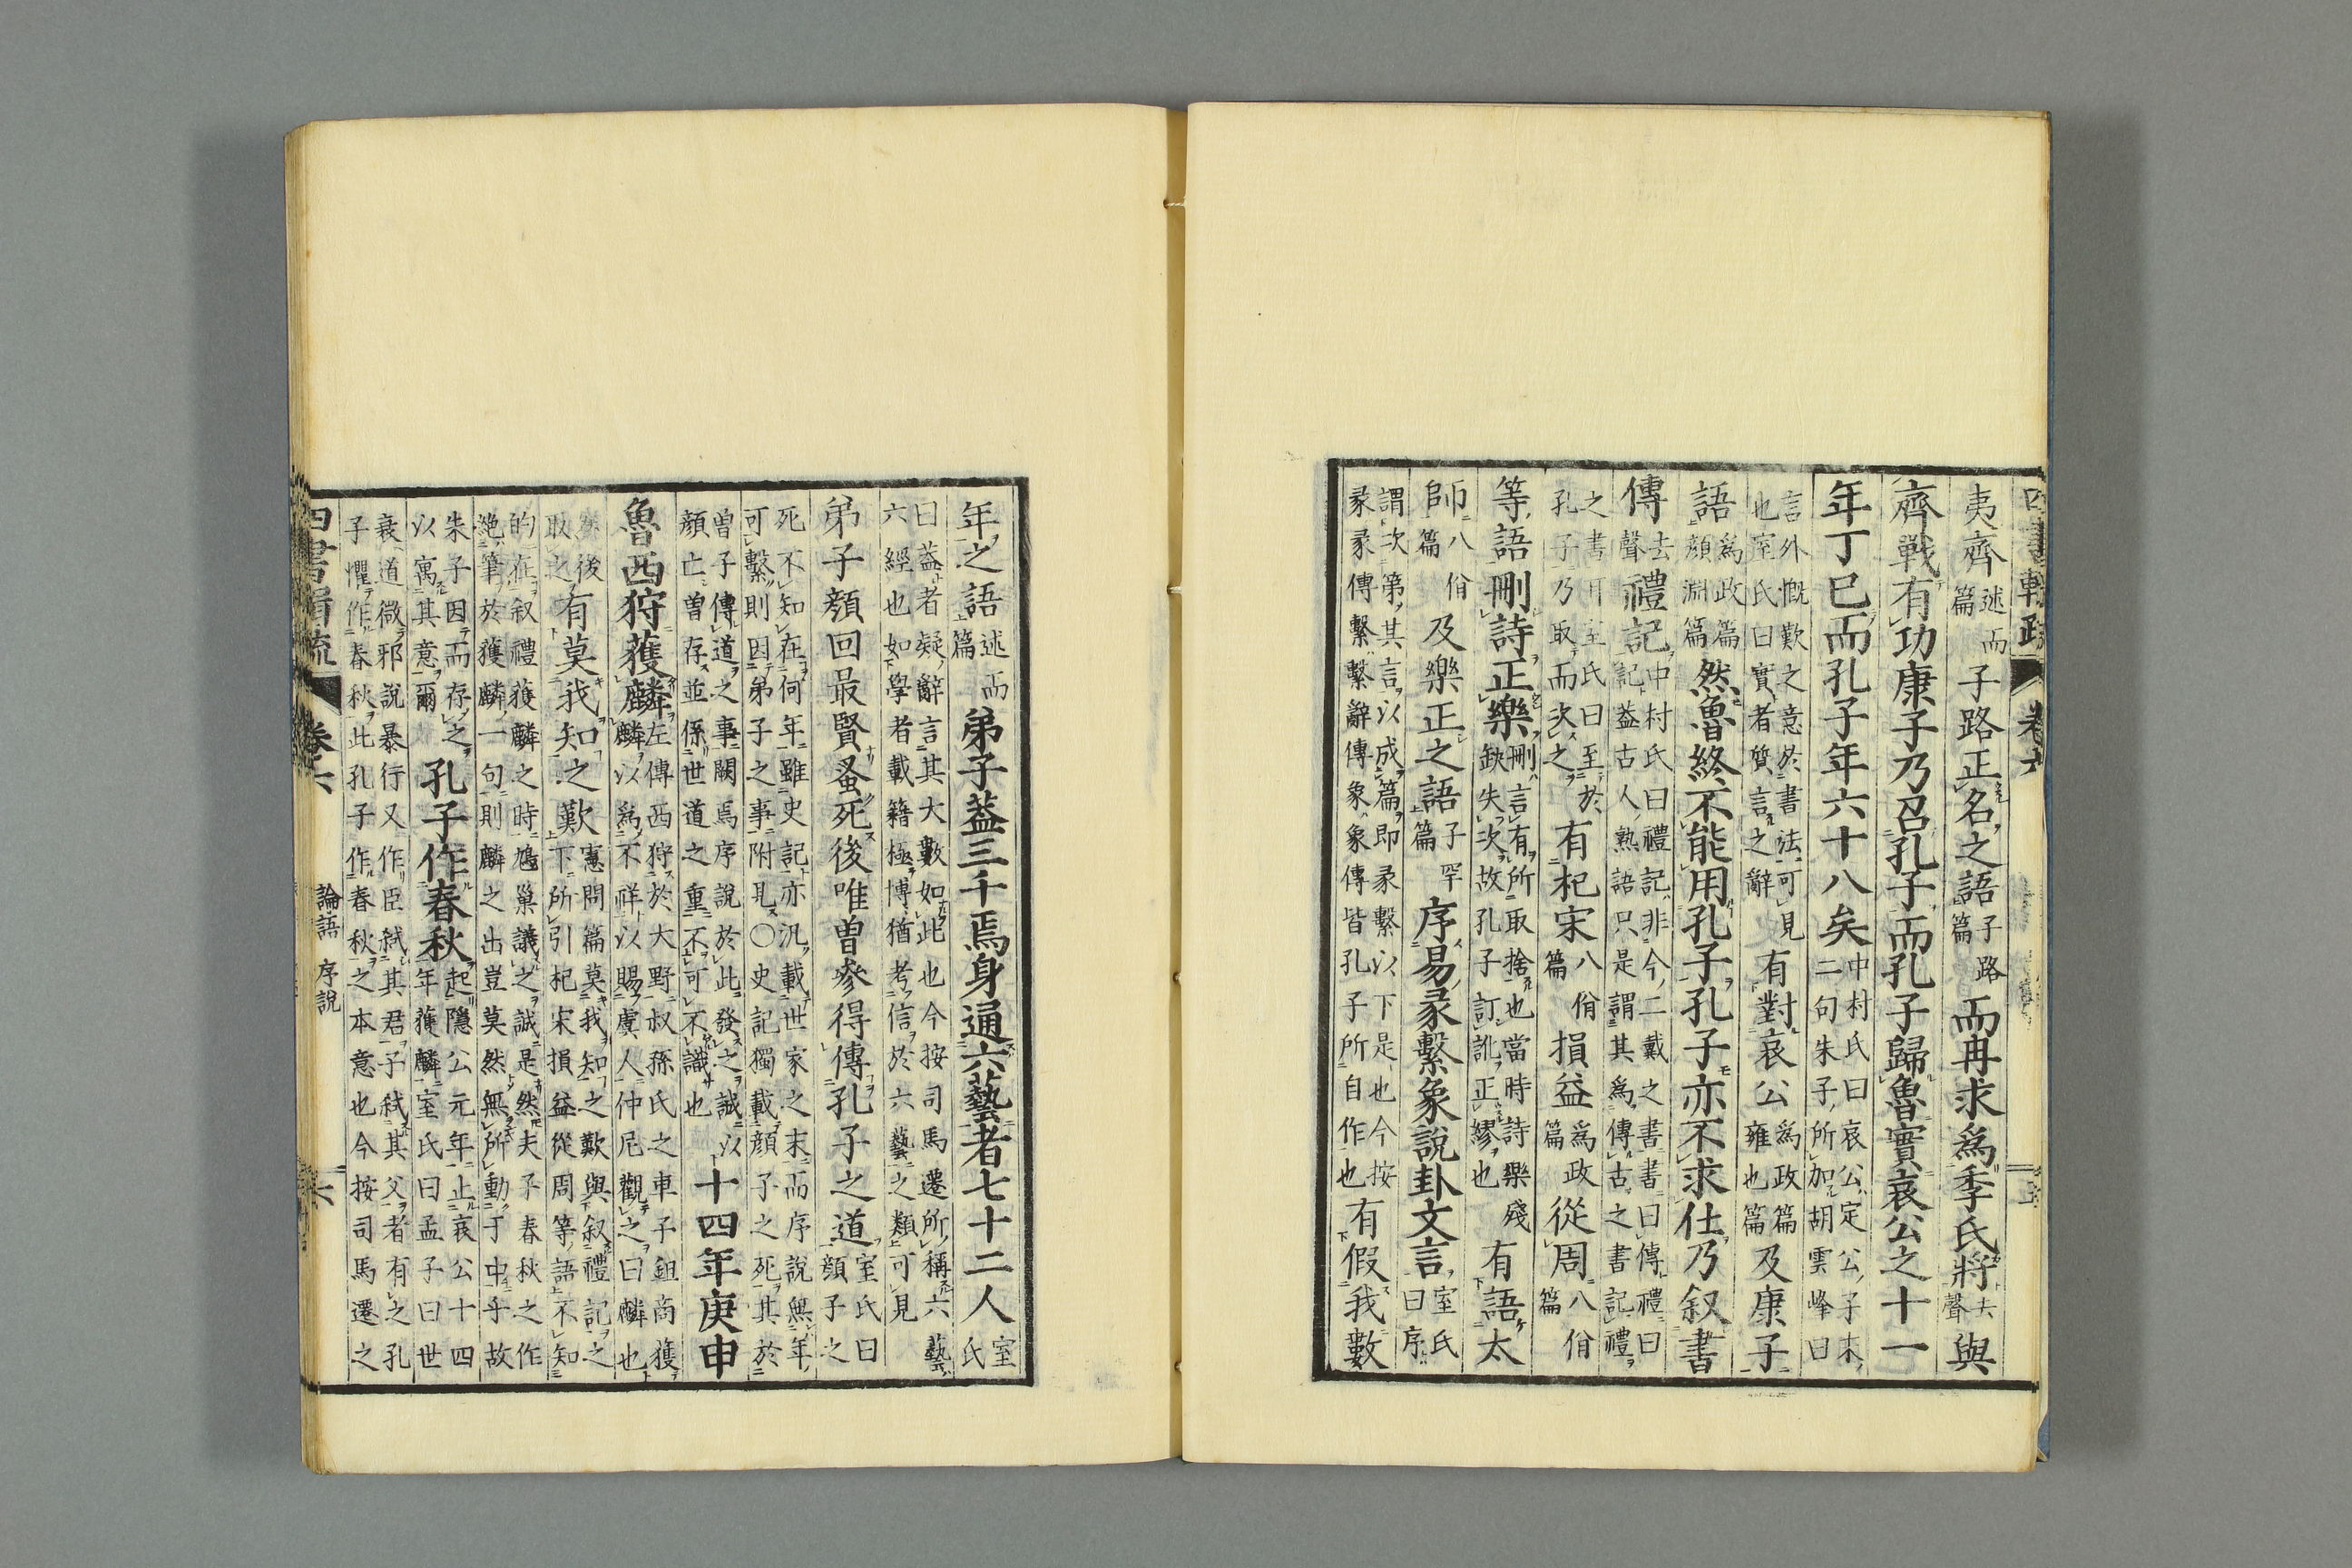 四書輯疏 卷六
夷齊述而篇子路正名之語子路篇而冉求爲季氏將去聲與
齊戰有功康子乃召孔子而孔子歸魯實哀公之十一
年丁巳而孔子年六十八矣中村氏曰哀公定公子末
二句朱子所加胡雲峰曰
言外慨歎之意於書法可見
也室氏曰實者質言之辭
有對哀公爲政篇雍也篇及康子
語爲政篇顏淵篇然魯終不能用孔子孔子亦不求仕乃叙書
傳去聲禮記中村氏曰禮記非今二戴之書書曰傳禮曰
記蓋古人熟語只是謂其爲傳古之書記禮
之書耳室氏曰至於
孔子乃取而次之
有杞宋八佾篇損益爲政篇從周八佾篇
等語刪詩正樂刪言有所取捨也當時詩樂殘
缺失次故孔子訂訛正繆也
有語太
師八佾篇及樂正之語子罕篇序易彖繫象說卦文言室氏曰序
謂次第其言以成篇即彖繫以下是也今按
彖彖傳繫繫辭傳象象傳皆孔子所自作也
有假我數
年之語述而篇弟子蓋三千焉身通六藝者七十二人室氏
曰蓋者疑辭言其大數如此也今按司馬遷所稱六藝
六經也如學者載籍極博猶考信於六藝之類可見
弟子顏回最賢蚤死後唯曾參得傳孔子之道室氏曰顏子之
死不知在何年雖史記亦汎載世家之末而序說無年
可繫則因弟子之事附見○史記獨載顏子之死其於
曾子傳道之事闕焉序說於此發之誠以
顏亡曾存並係世道之重不可不識也
十四年庚申
魯西狩獲麟左傳西狩於大野叔孫氏之車子鉏商獲
麟以爲不祥以賜虞人仲尼觀之曰麟也
然後取之有莫我知之歎憲問篇莫我知之歎與叙禮記之
下所引杞宋損益從周等語不知
的在叙禮獲麟之時鳩巢議之誠是然夫子春秋之作
絶筆於獲麟一句則麟之出豈莫然無所動于中乎故
朱子因而存之
以寓其意爾
孔子作春秋起隱公元年止哀公十四
年獲麟室氏曰孟子曰世
衰道微邪說暴行又作臣弑其君子弑其父者有之孔
子懼作春秋此孔子作春秋之本意也今按司馬遷之
四書輯疏 卷六 論語 序說 六